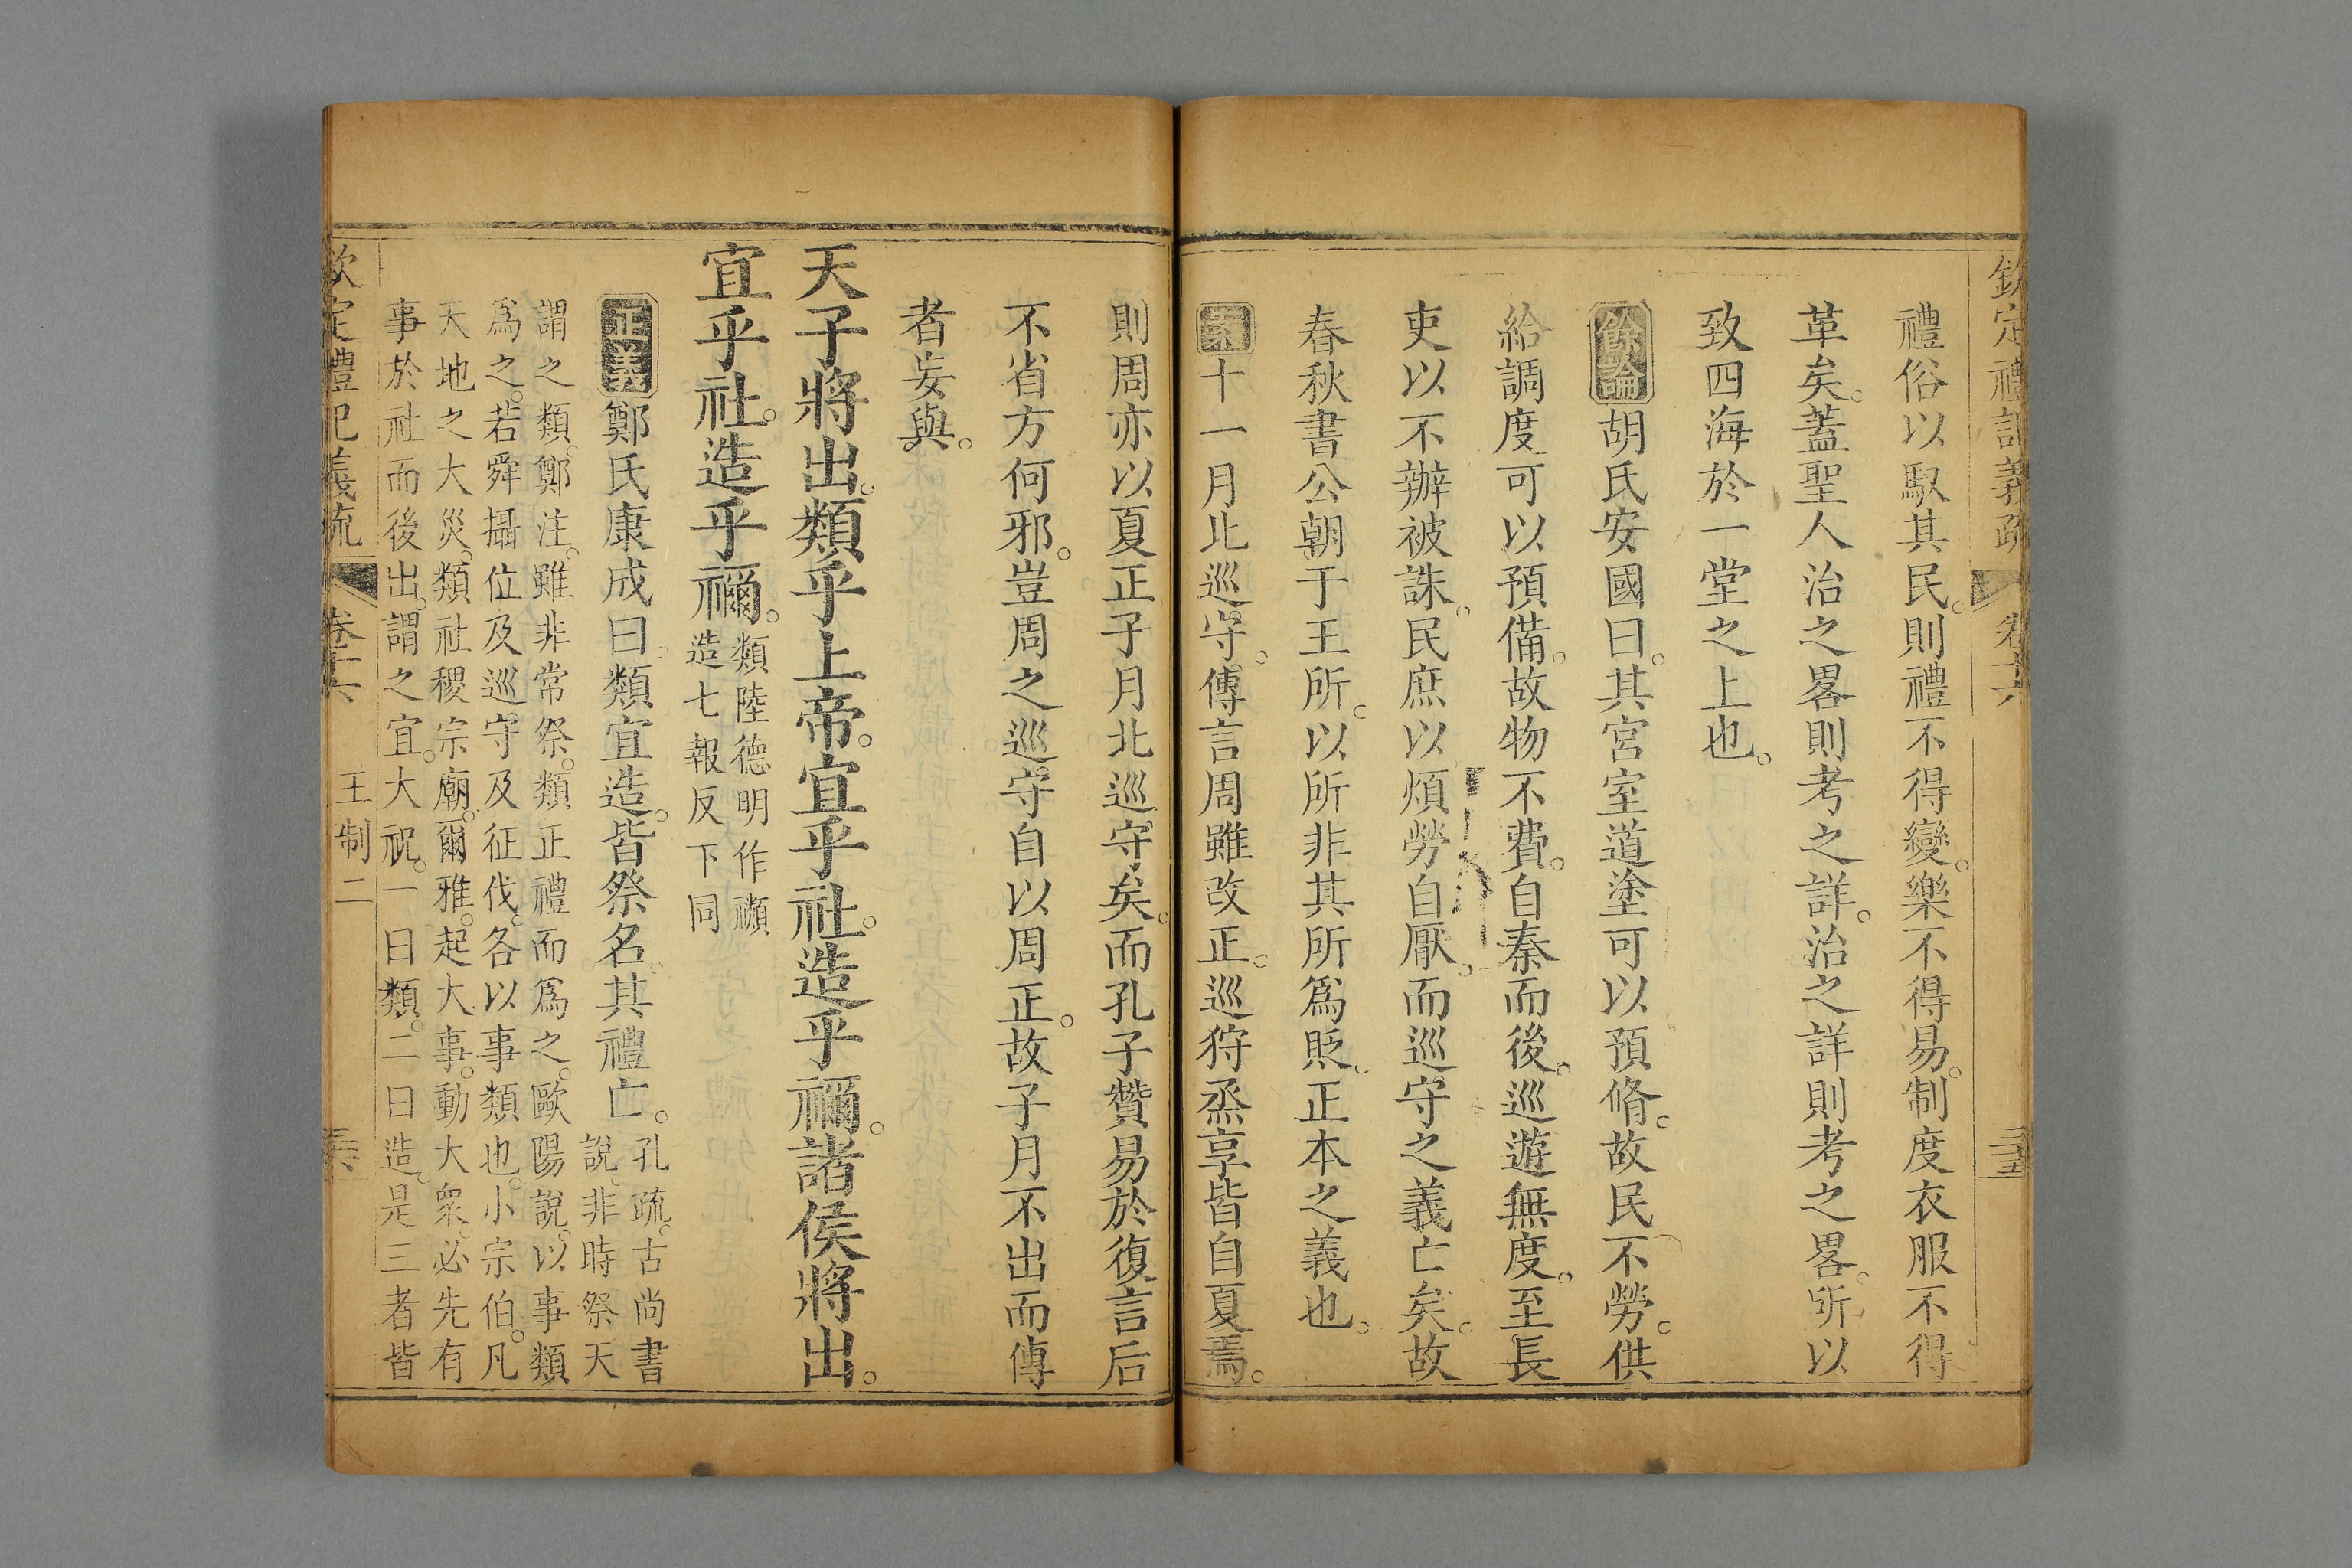 欽定禮記義疏 卷十六
禮俗以馭其民。則禮不得變。樂不得易。制度衣服不得
革矣。蓋聖人治之畧則考之詳。治之詳則考之畧。所以
致四海於一堂之上也。
餘論胡氏安國曰。其宮室道塗可以預脩。故民不勞。供
給調度可以預備。故物不費。自秦而後。巡遊無度。至長
吏以不辦被誅。民庶以煩勞自厭。而巡守之義亡矣。故
春秋書公朝于王所。以所非其所爲貶。正本之義也。
案十一月北巡守。傳言周雖改正。巡狩烝享皆自夏焉。
則周亦以夏正子月北巡守矣。而孔子贊易於復言后
不省方何邪。豈周之巡守自以周正。故子月不出而傳
者妄與。
天子將出。類乎上帝。宜乎社。造乎禰。諸侯將出。
宜乎社。造乎禰。類陸德明作禷
造七報反下同
正義鄭氏康成曰。類宜造。皆祭名。其禮亡。孔疏。古尚書
說。非時祭天
謂之類。鄭注。雖非常祭。類正禮而爲之。歐陽說。以事類
爲之。若舜攝位及巡守及征伐。各以事類也。小宗伯。凡
天地之大災。類社稷宗廟。爾雅。起大事。動大衆。必先有
事於社而後出。謂之宜。大祝。一曰類。二曰造。是三者皆
欽定禮記義疏 卷十六 王制二